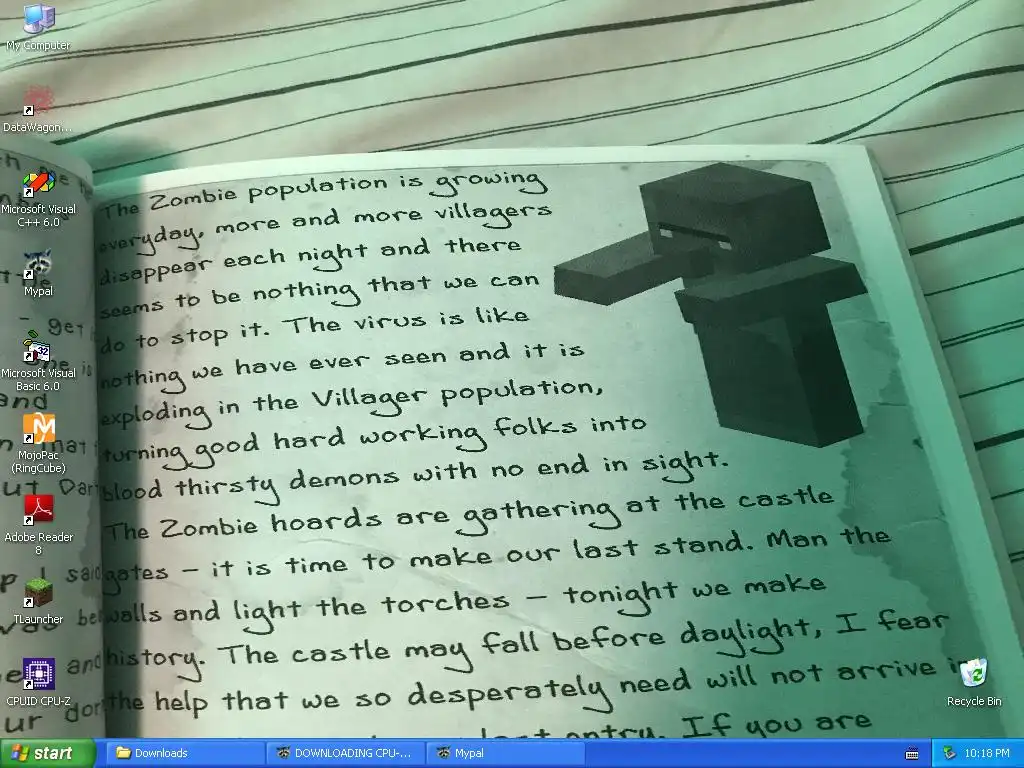 My Computer
DataWagon...
Microsoft Visual
C++ 6.0
Mypal
Microsoft Visual
Basic 6.0
MojoPac
(RingCube)
Adobe Reader
8
TLauncher
CPUID CPU-Z
The Zombie population is growing
everyday, more and more villagers
disappear each night and there
seems to be nothing that we can
do to stop it. The virus is like
nothing we have ever seen and it is
exploding in the Villager population,
turning good hard working folks into
blood thirsty demons with no end in sight.
The Zombie hoards are gathering at the castle
gates – it is time to make our last stand. Man the
walls and light the torches – tonight we make
history. The castle may fall before daylight, I fear
the help that we so desperately need will not arrive
entry. If you are
Recycle Bin
start
Downloads
DOWNLOADING CPU-...
Mypal
10:18 PM